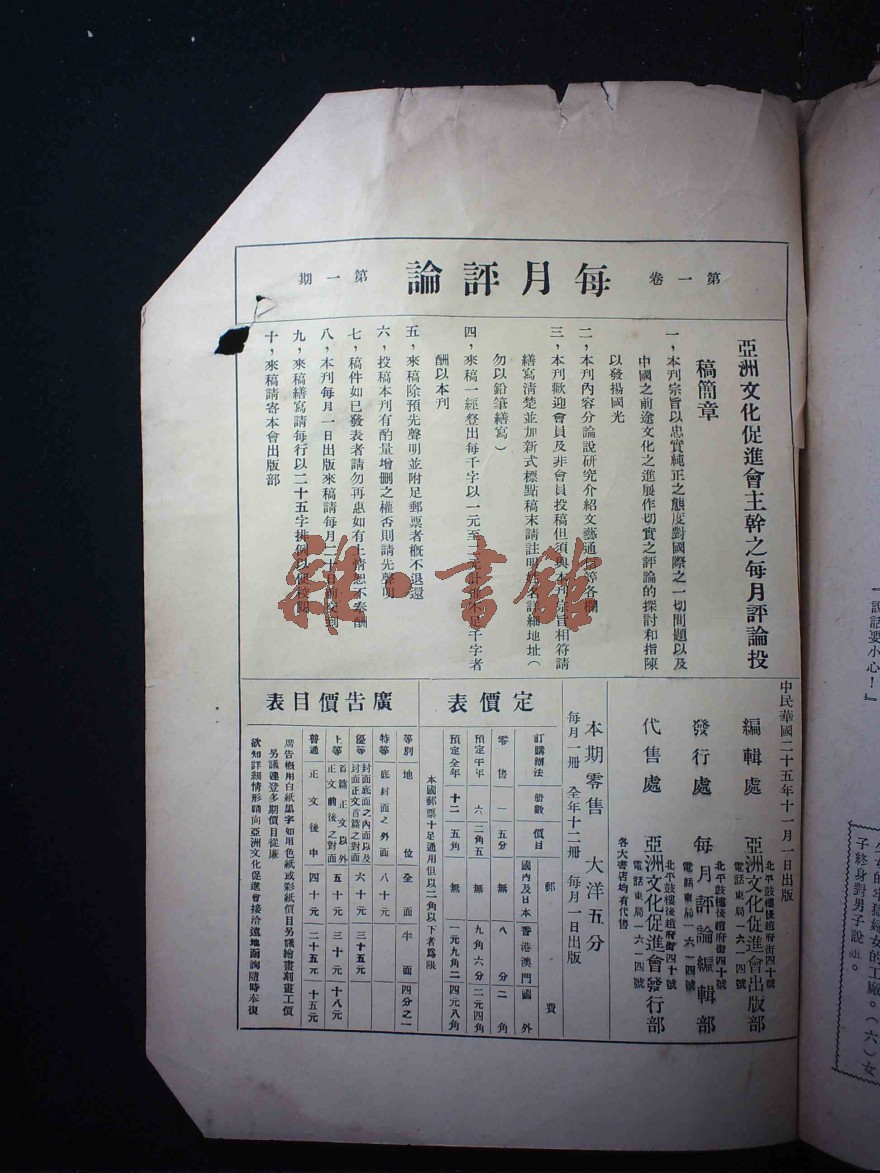 第一卷 每月評論 第一期
亞洲文化促進會主幹之每月評論投
稿簡章
一，本刊宗旨以忠實純正之態度對國際之一切問題以及
中國之前途文化之進展作切實之評論的探討和指陳
以發揚國光
二，本刊內容分論說研究介紹文藝通信等各欄
三，本刊歡迎會員及非會員投稿但須與本刊宗旨相符請
繕寫清楚並加新式標點稿末請註明姓名詳細地址（
勿以鉛筆繕寫）
四，來稿一經登出每千字以一元至二元計算不足千字者
酬以本刊
五，來稿除預先聲明並附足郵票者概不退還
六，投稿本刊有酌量增刪之權否則請先聲明
七，稿件如已發表者請勿再惠如有上情恕不奉酬
八，本刊每月一日出版來稿請每月二十日前交到
九，來稿繕寫請每行以二十五字排例以便校閱
十，來稿請寄本會出版部
中民華國二十五年十一月一日出版
編輯處 亞洲文化促進會出版部
北平鼓樓後趙府街四十號
電話東局一六一四號
發行處 每月評論編輯部
北平鼓樓後趙府街四十號
電話東局一六一四號
代售處 亞洲文化促進會發行部
北平鼓樓後趙府街四十號
電話東局一六一四號
各大書店均有代售
本期零售 大洋五分
每月一冊 全年十二冊 每月一日出版
定價表
訂購辦法 冊數 價目 郵費
國內及日本 香港澳門 國外
零售 一 五分 無 八分 二角
預定半年 六 二角五 無 九角六分 二元四角
預定全年 十二 五角 無 一元九角二 四元八角
本國郵票十足通用但以二角以下者為限
廣告價目表
等別 地位 全面 半面 四分之一
特等 底封面之外面 八十元
優等 封面底面之內面以及封面正文首篇之對面 六十元 三十五元
上等 首篇正文以外正文前後之對面 五十元 三十元 十八元
普通 正文後中 四十元 二十五元 十五元
廣告概用白紙黑字如用色紙或彩紙價目另議繪畫刻畫工價
另議連登多期價目從廉
欲知詳細情形請向亞洲文化促進會接洽遠地函詢隨時奉復
雜·書館
『說話要小心！』
女的工廠。（六）女
子終身對男子說